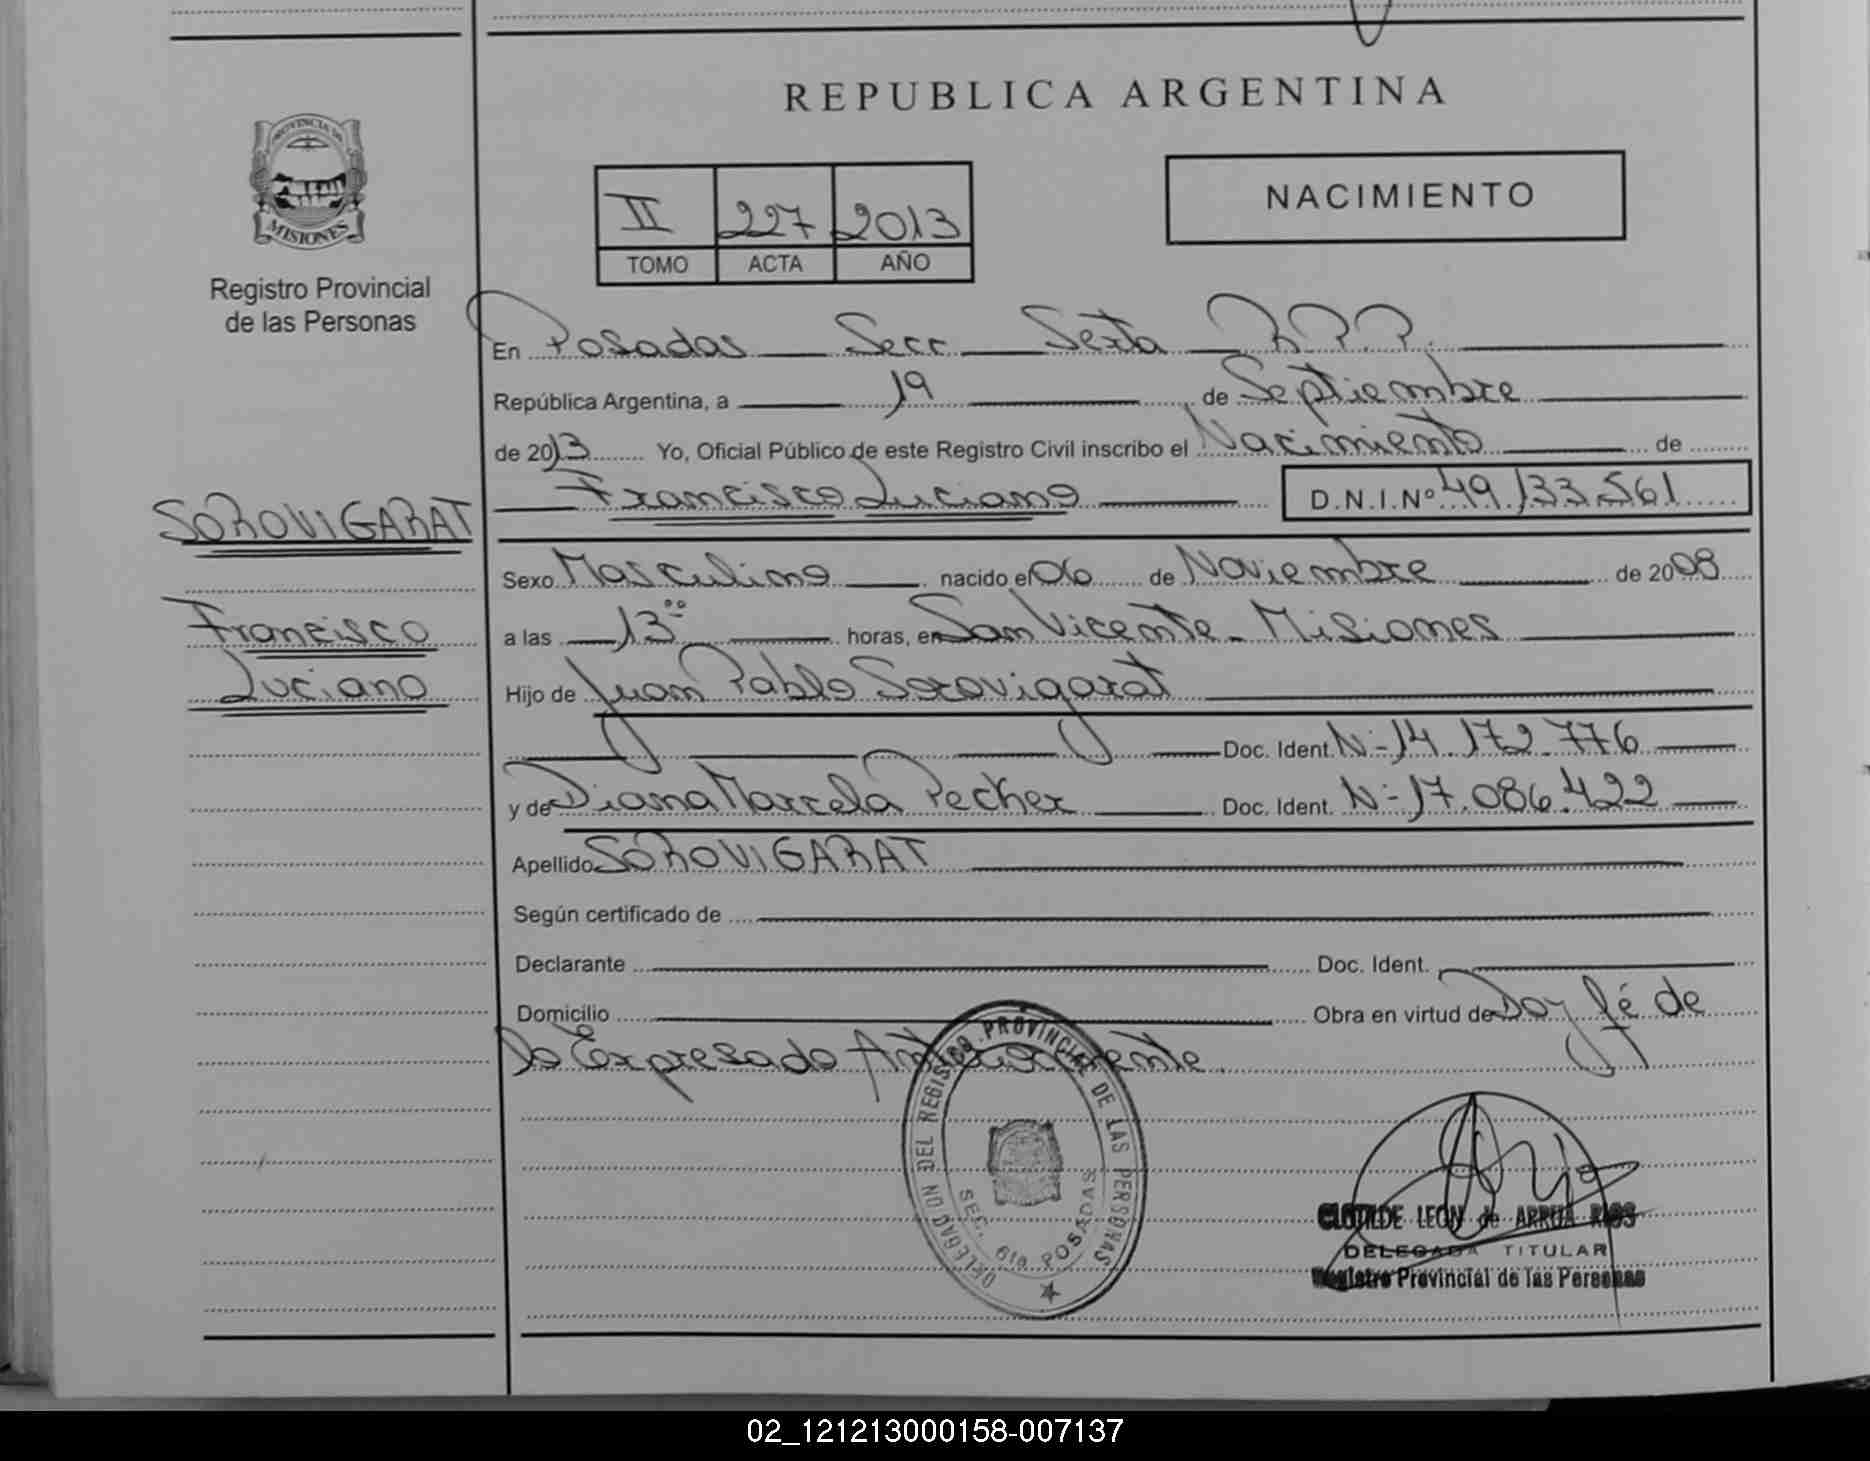 REPUBLICA ARGENTINA
PROVINCIA DE
MISIONES
Registro Provincial
de las Personas
II 227 2013
TOMO ACTA AÑO
NACIMIENTO
En Posadas Secc Sexta R.P.P.
República Argentina, a 19 de Septiembre
de 2013 Yo, Oficial Público de este Registro Civil inscribo el Nacimiento de
Francisco Luciano D.N.I.Nº 49.133.561
SOROVIGARAT
Francisco
Luciano
Sexo Masculino nacido el 06 de Noviembre de 2008
a las 13⁰⁰ horas, en San Vicente - Misiones
Hijo de Juan Pablo Sorovigarat
Doc. Ident. Nº 14.172.776
y de Diana Marcela Pecher Doc. Ident. Nº 17.086.422
Apellido SOROVIGARAT
Según certificado de
Declarante Doc. Ident.
Domicilio Obra en virtud de Doy fé de
lo Expresado Antecedente.
DELEGACION DEL REGISTRO PROVINCIAL DE LAS PERSONAS
SEC. 6ta POSADAS
CLOTILDE LEON de ARRUA RIOS
DELEGADA TITULAR
Registro Provincial de las Personas
02_121213000158-007137